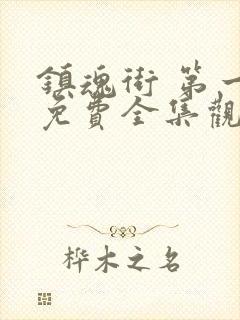 鎮魂街 第一
免費全集觀
桦木之名